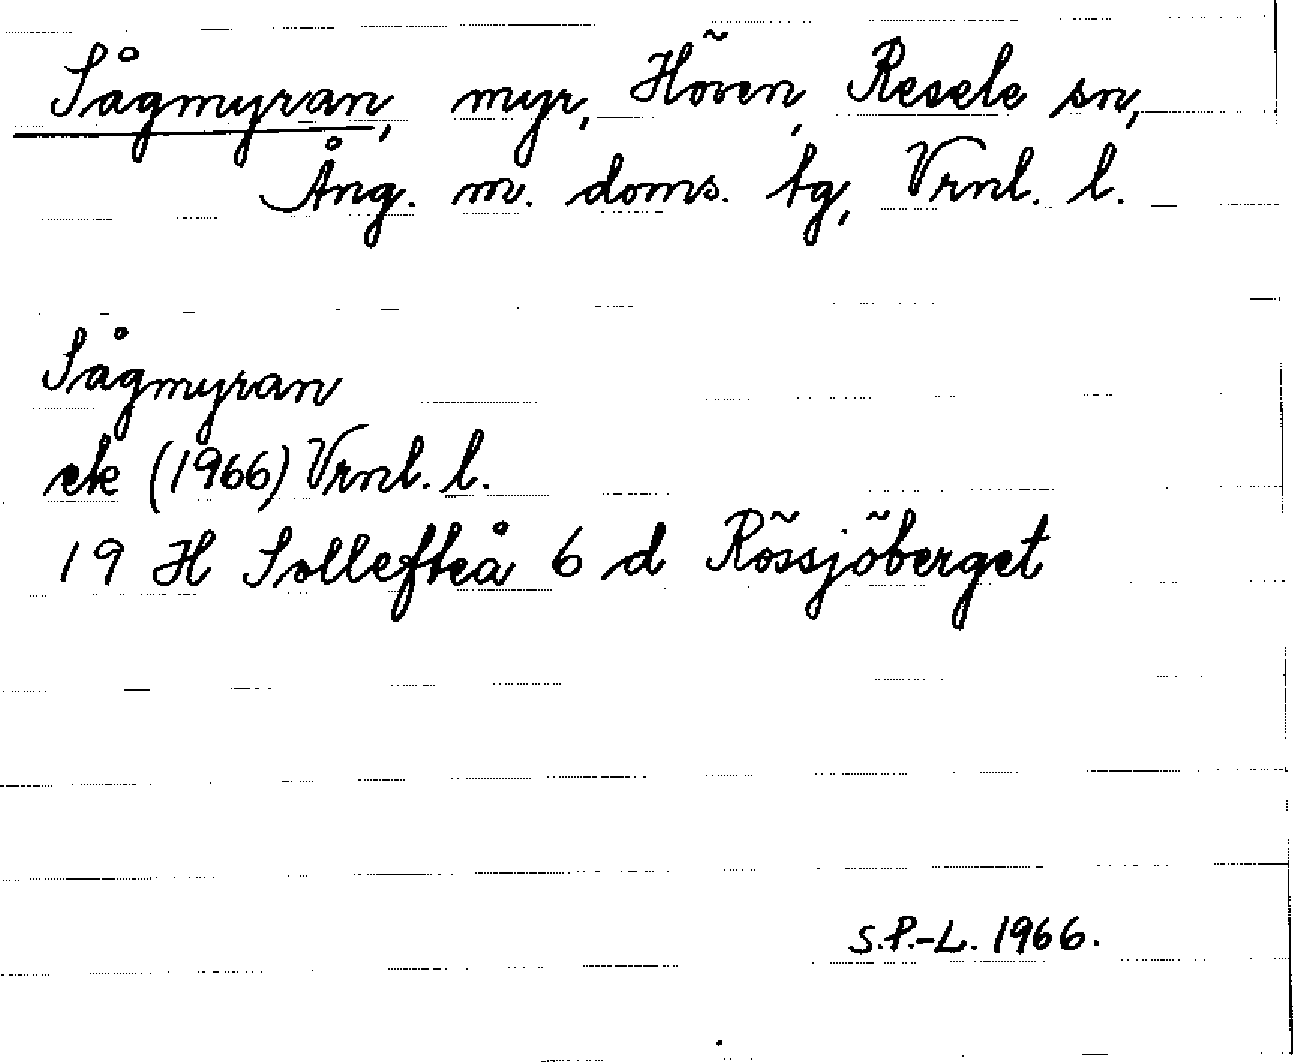 Sågmyran, myr, Höven, Resele sn,
Ång. m. doms. tg, Vrnl. l.
Sågmyran
ek (1966) Vrnl. l.
19 H Sollefteå 6 d Rössjöberget
S.P.-L. 1966.